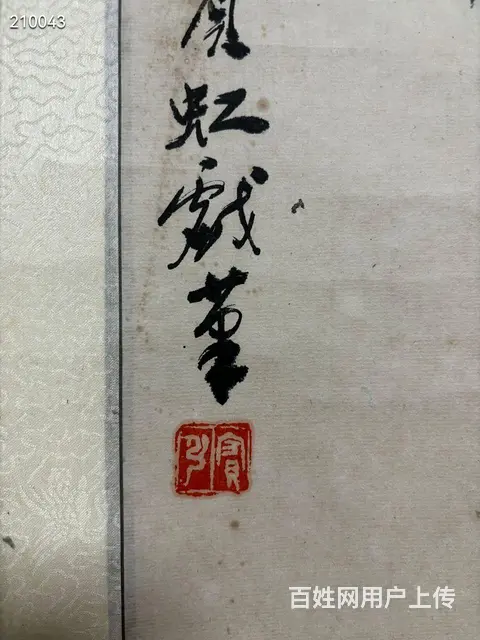 210043
賓虹戲筆
百姓网用户上传